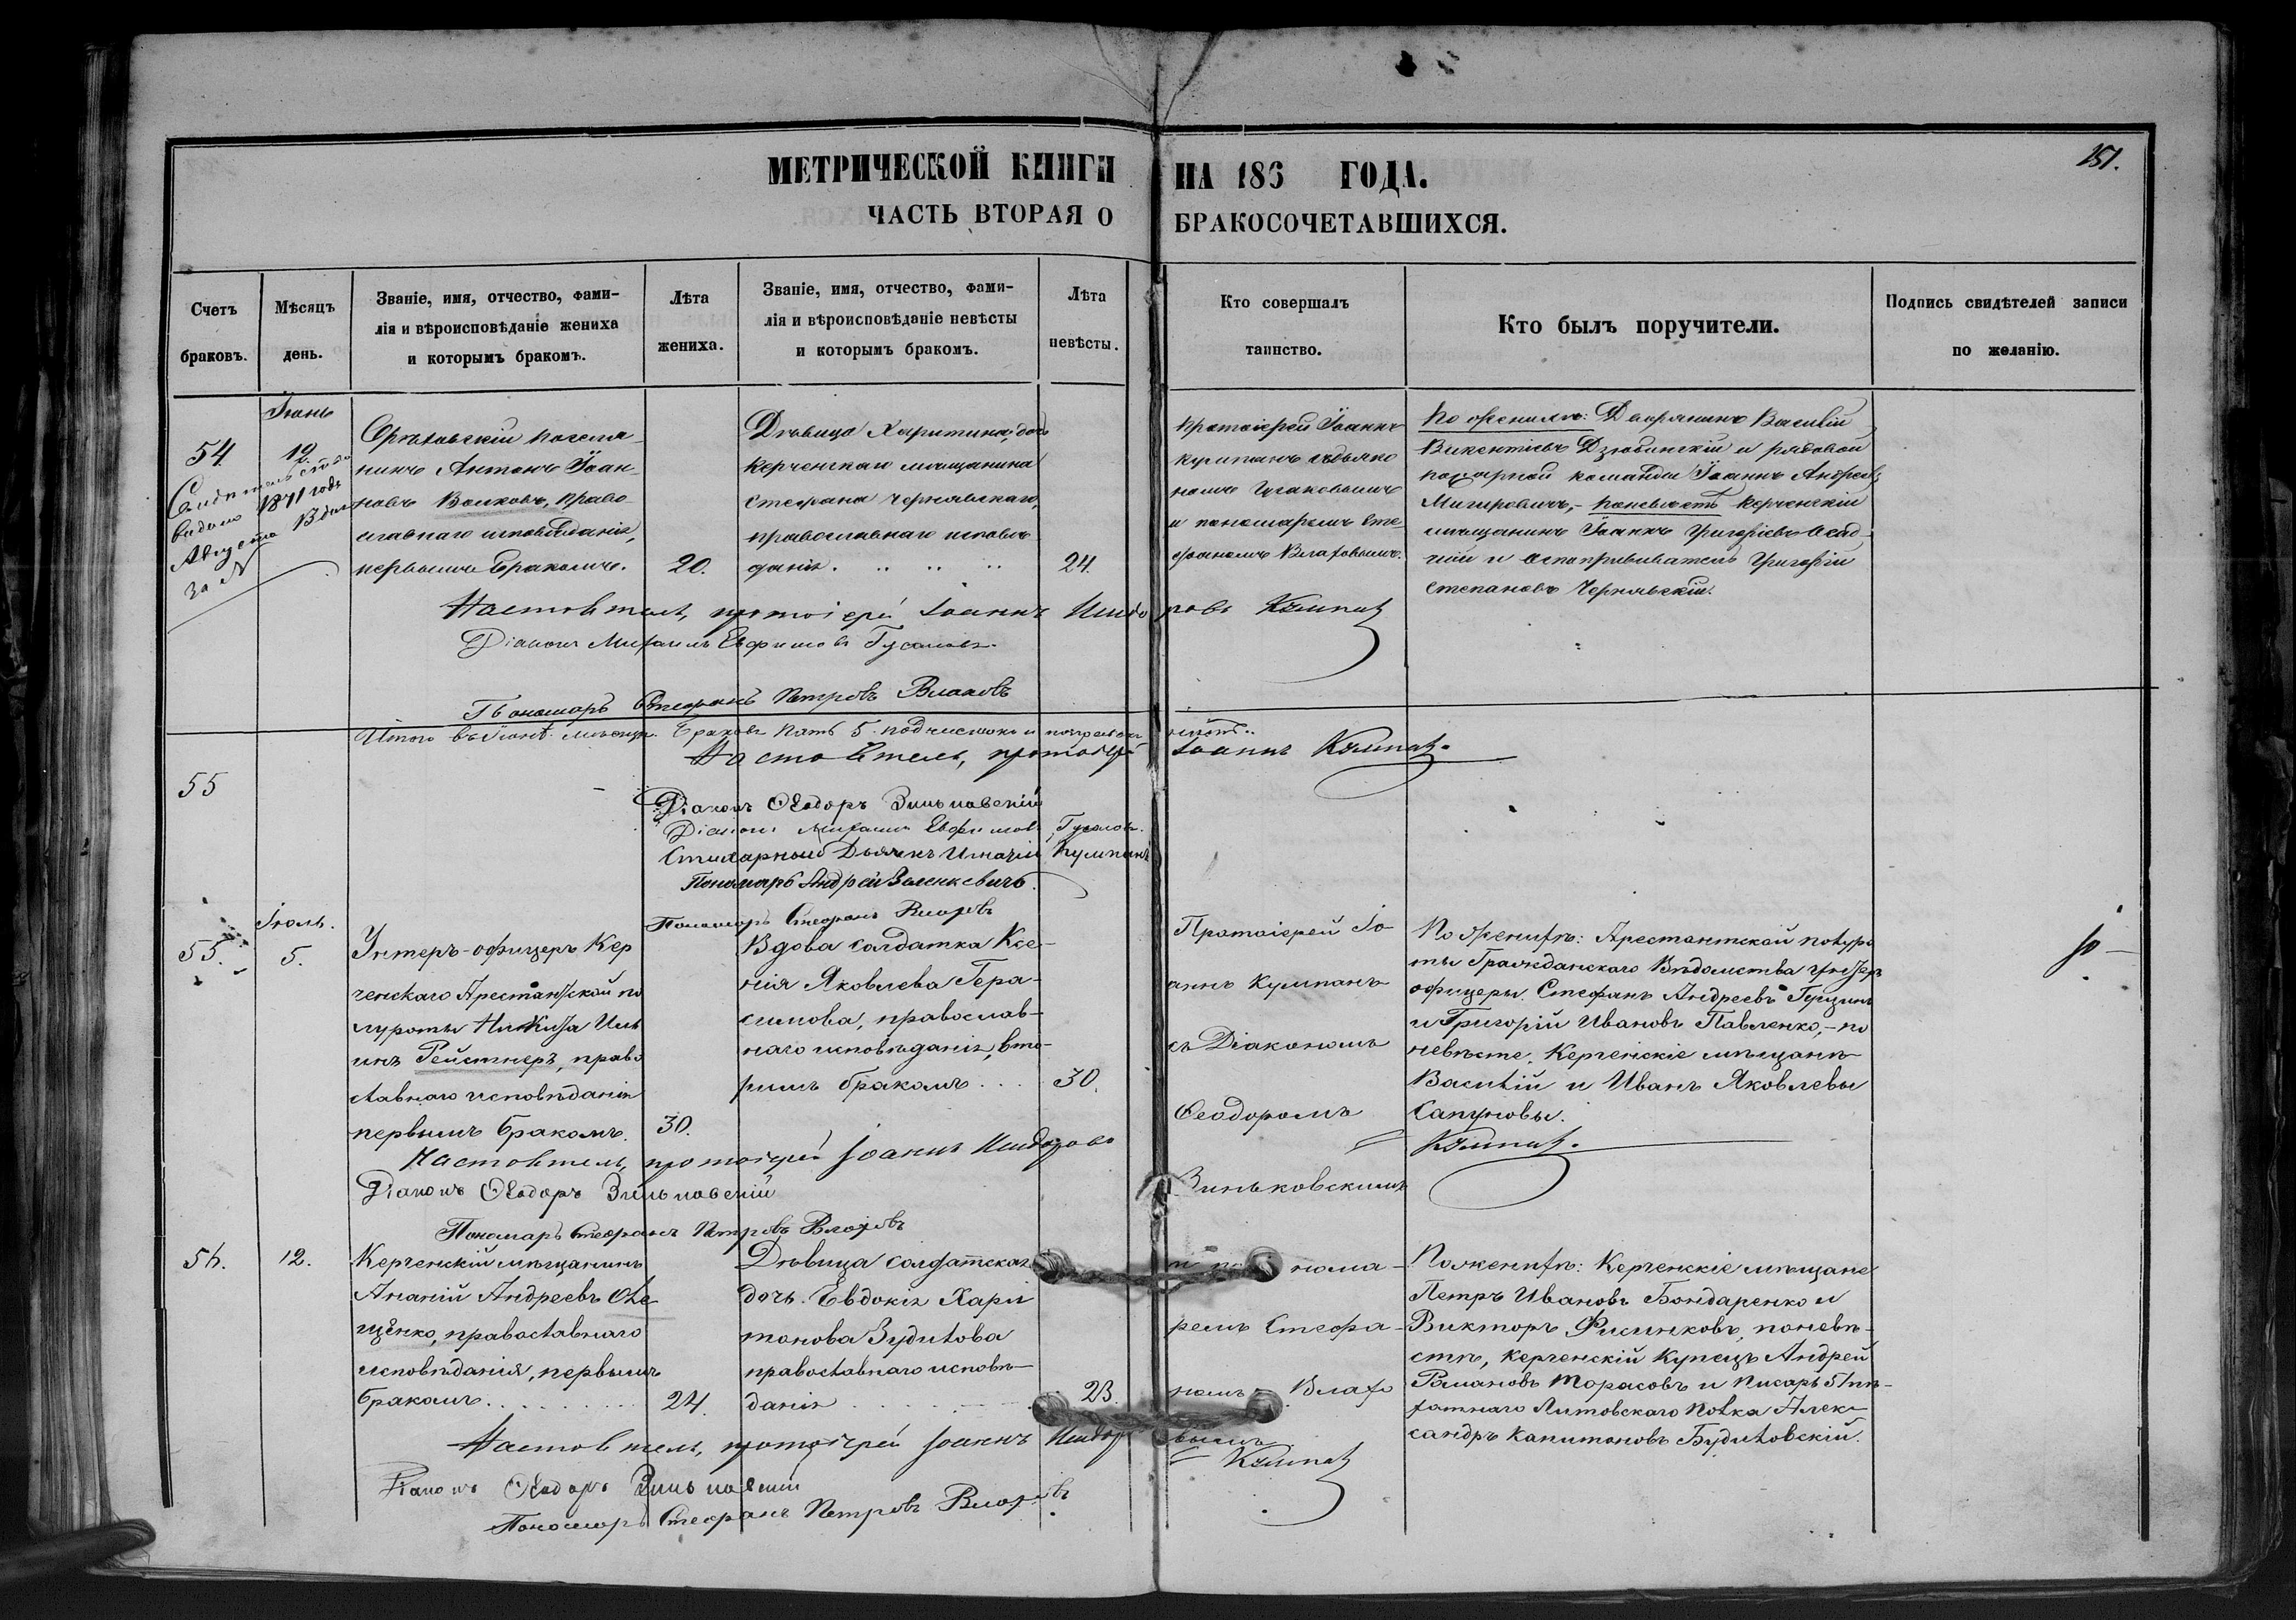 МЕТРИЧЕСКОЙ КНИГИ НА 186 ГОДА.
151.
ЧАСТЬ ВТОРАЯ О БРАКОСОЧЕТАВШИХСЯ.
Счетъ браковъ.
Мѣсяцъ день.
Званіе, имя, отчество, фами-
лія и вѣроисповѣданіе жениха
и которымъ бракомъ.
Лѣта жениха.
Званіе, имя, отчество, фами-
лія и вѣроисповѣданіе невѣсты
и которымъ бракомъ.
Лѣта невѣсты.
Кто совершалъ таинство.
Кто былъ поручители.
Подпись свидѣтелей записи
по желанію.
54.
1871 года
Августа
за №
Іюнь
12.
Орѣховскій поселя-
нинъ Антонъ Іоан-
новъ Волковъ, право-
славнаго исповѣданія,
первымъ бракомъ.
20.
Дѣвица Харитина, дочь
керченскаго мѣщанина
Стефана Чернявскаго,
православнаго исповѣ
данія.
24.
протоіерей Іоаннъ
Кумпанъ съ діако
номъ Гусаковымъ
и пономаремъ Сте
фаномъ Влаховымъ.
По женихѣ: Дворянинъ Василій
Викентіевъ Дзюбинскій и рядовой
пожарной команды Іоаннъ Андреевъ
Мигировичъ, - по невѣстѣ керченскій
мѣщанинъ Іоаннъ Григорьевъ Осад-
чій и оспопрививатель Григорій
Степановъ Чернявскій.
Настоятель, протоіерей Іоаннъ Исидоровъ Кумпанъ
Діаконъ Михаилъ Евфимовъ Гусаковъ.
Пономарь Стефанъ Петровъ Влаховъ
Итого въ Іюнѣ мѣсяцѣ браковъ пять 5.
Настоятель, протоіерей Іоаннъ Кумпанъ.
55
Діаконъ Ѳеодоръ Зиньковскій
Діаконъ Михаилъ Евфимовъ Гусаковъ.
Стихарный Дьячекъ Игнатій Кумпанъ
Пономарь Андрей Валенкевичъ.
Пономарь Стефанъ Влаховъ
55.
Іюль.
5.
Унтеръ-офицеръ Кер
ченскаго Арестантской по
луроты Никита Иль
инъ Рейстнеръ, право
славнаго исповѣданія
первымъ бракомъ.
30.
Вдова солдатка Ксе-
нія Яковлева Гера-
симова, православ-
наго исповѣданія, вто-
рымъ бракомъ . . .
30.
Протоіерей Іо-
аннъ Кумпанъ
съ Діакономъ
Ѳеодоромъ
Зиньковскимъ
По женихѣ: Арестантской полуро
ты Гражданскаго Вѣдомства унтеръ
офицеры. Стефанъ Андреевъ Гущинъ
и Григорій Ивановъ Павленко, - по
невѣсте. Керченскіе мѣщанѣ
Василій и Иванъ Яковлевы
Сапуновы.
Настоятель, протоіерей Іоаннъ Исидоровъ Кумпанъ.
Діаконъ Ѳеодоръ Зиньковскій
Пономарь Стефанъ Петровъ Влаховъ
56.
12.
Керченскій мѣщанинъ
Ананій Андреевъ Оле
щенко, православнаго
исповѣданія, первымъ
бракомъ.
24.
Дѣвица солдатская
дочь. Евдокія Хари
тонова Зудилова
православнаго исповѣ-
данія
23.
и по нома-
ремъ Стефа-
номъ Влахо
вымъ
По женихѣ: Керченскіе мѣщане
Петръ Ивановъ Бондаренко и
Викторъ Фисинковъ, по невѣ-
стѣ, керченскій купецъ Андрей
Романовъ Тарасовъ и Писарь 51 пѣ-
хотнаго Литовскаго полка Алек-
сандръ Капитоновъ Будиловскій.
Настоятель, протоіерей Іоаннъ Исидор Кумпанъ
Діаконъ Ѳеодоръ Зиньковскій
Пономарь Стефанъ Петровъ Влаховъ